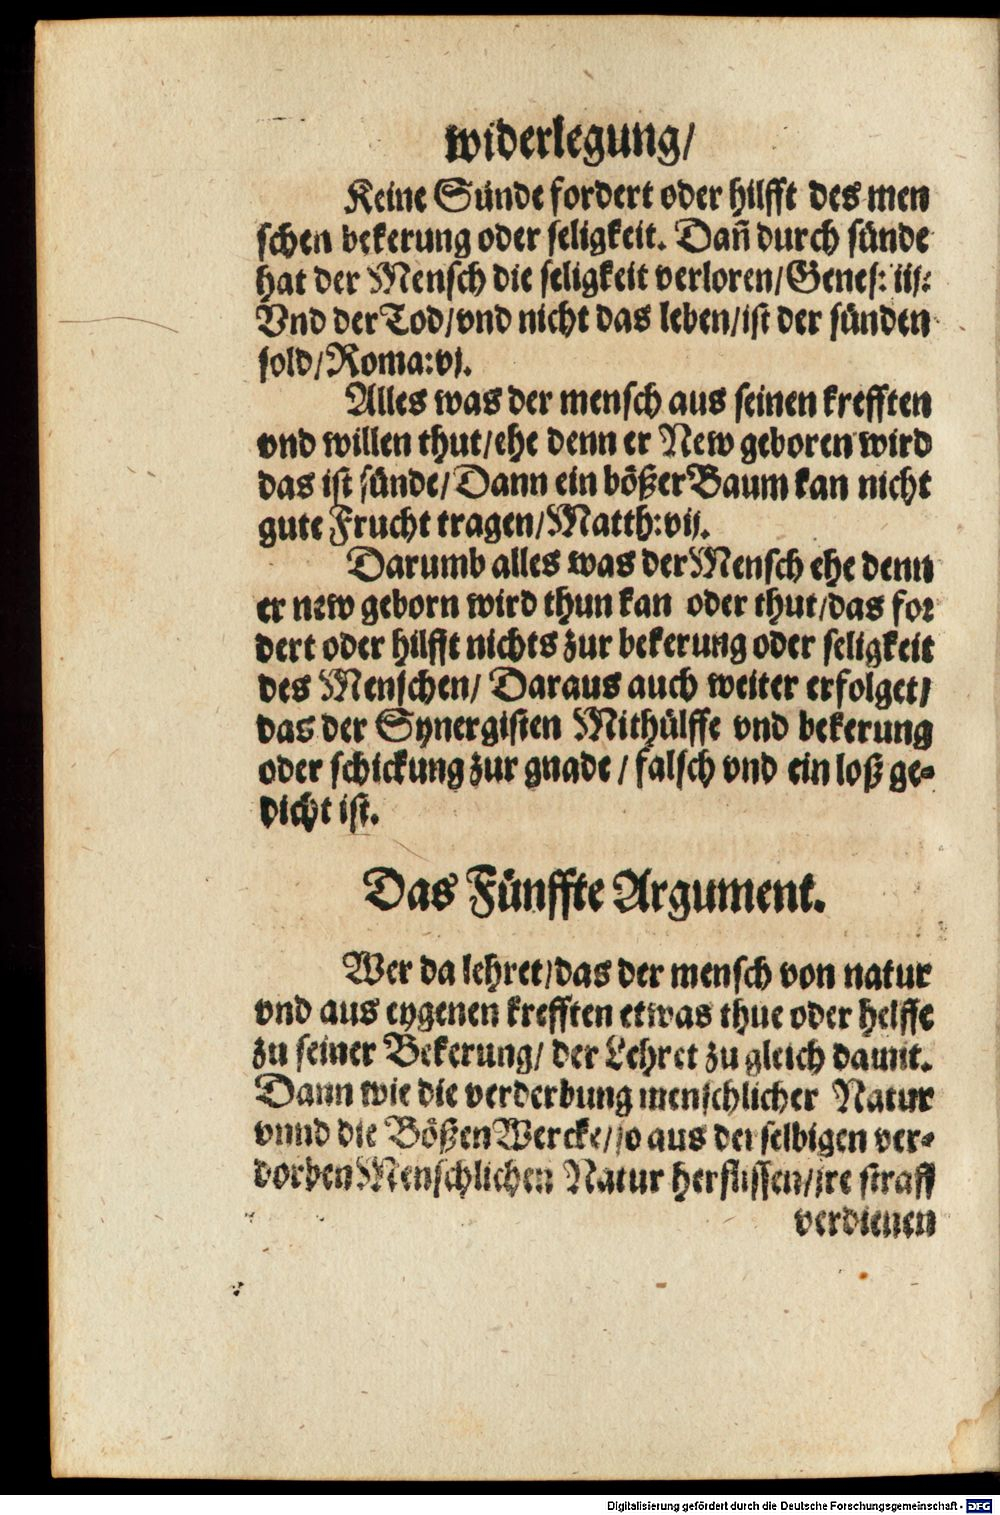 widerlegung/
Keine Sünde fordert oder hilfft des men
schen bekerung oder seligkeit. Dañ durch sünde
hat der Mensch die seligkeit verloren/Genes: iij:
Vnd der Tod/vnd nicht das leben/ist der sünden
sold/Roma:vj.
Alles was der mensch aus seinen krefften
vnd willen thut/ehe denn er New geboren wird
das ist sünde/Dann ein bößer Baum kan nicht
gute Frucht tragen/Matth:vij.
Darumb alles was der Mensch ehe denn
er new geborn wird thun kan oder thut/das for
dert oder hilfft nichts zur bekerung oder seligkeit
des Menschen/ Daraus auch weiter erfolget/
das der Synergisten Mithülffe vnd bekerung
oder schickung zur gnade / falsch vnd ein loß ge-
dicht ist.
Das Fünffte Argument.
Wer da lehret/das der mensch von natur
vnd aus eygenen krefften etwas thue oder helffe
zu seiner Bekerung/ der Lehret zu gleich damit.
Dann wie die verderbung menschlicher Natur
vnnd die Bößen Wercke/so aus der selbigen ver-
dorben Menschlichen Natur herflissen/jre straff
verdienen
Digitalisierung gefördert durch die Deutsche Forschungsgemeinschaft - DFG